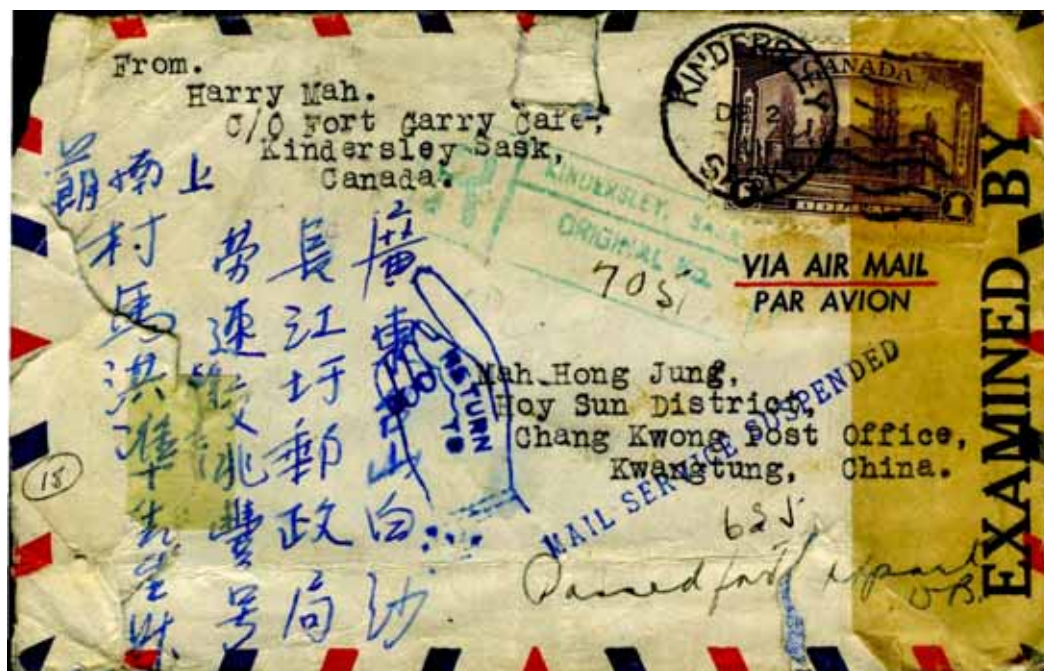 From.
Harry Mah.
C/O Fort Garry Cafe,
Kindersley Sask,
Canada.
KINDERSLEY
SASK
CANADA
DOLLAR
1
KINDERSLEY, SASK
ORIGINAL NO.
705
VIA AIR MAIL
PAR AVION
EXAMINED BY
Mah Hong Jung,
Hoy Sun District,
Chang Kwong Post Office,
Kwangtung, China.
RETURN
TO
MAIL SERVICE SUSPENDED
625
Passed for
廣東台山白沙
長江圩郵政局
勞連 兆豐号
上南
村馬洪準先生
15